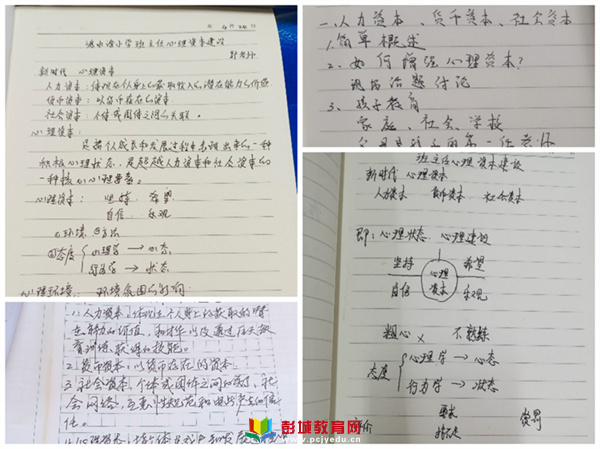 班主任心理资本建设
新时代 心理资本
人力资本：体现在人身上的获取收入的潜在能力的价值
货币资本：以货币存在的资本
社会资本：个体或团体之间的关联。
心理资本：
是指个体成长和发展过程中表现出来的一种
积极心理状态，是超越人力资本和社会资本的
一种核心心理要素。
心理资本： 坚持 希望
自信 乐观
①环境 ②方法
③态度 心理学→心态
行为学→状态
心理环境：环境氛围
一、人力资本、货币资本、社会资本
1.简单概述
2、如何增强心理资本？
现场话题讨论
3、孩子教育
家庭、社会、学校
1.人力资本：体现在个人身上的获取的
生物力的价值，和才华以及通过后天教
育训练获得的技能。
2.货币资本：以货币存在的资本
3.社会资本：个体或团体之间的关联，社
会网络，互惠性规范和由此产生的信
任。
班主任心理资本建设
新时代 心理资本
人力资本 货币资本 社会资本
即：心理状态，心理建设
坚持 希望
心理
资本
自信 乐观
粗心 × 不熟练
态度
心理学→心态
行为学→状态
彭城教育网
www.pcjyedu.cn